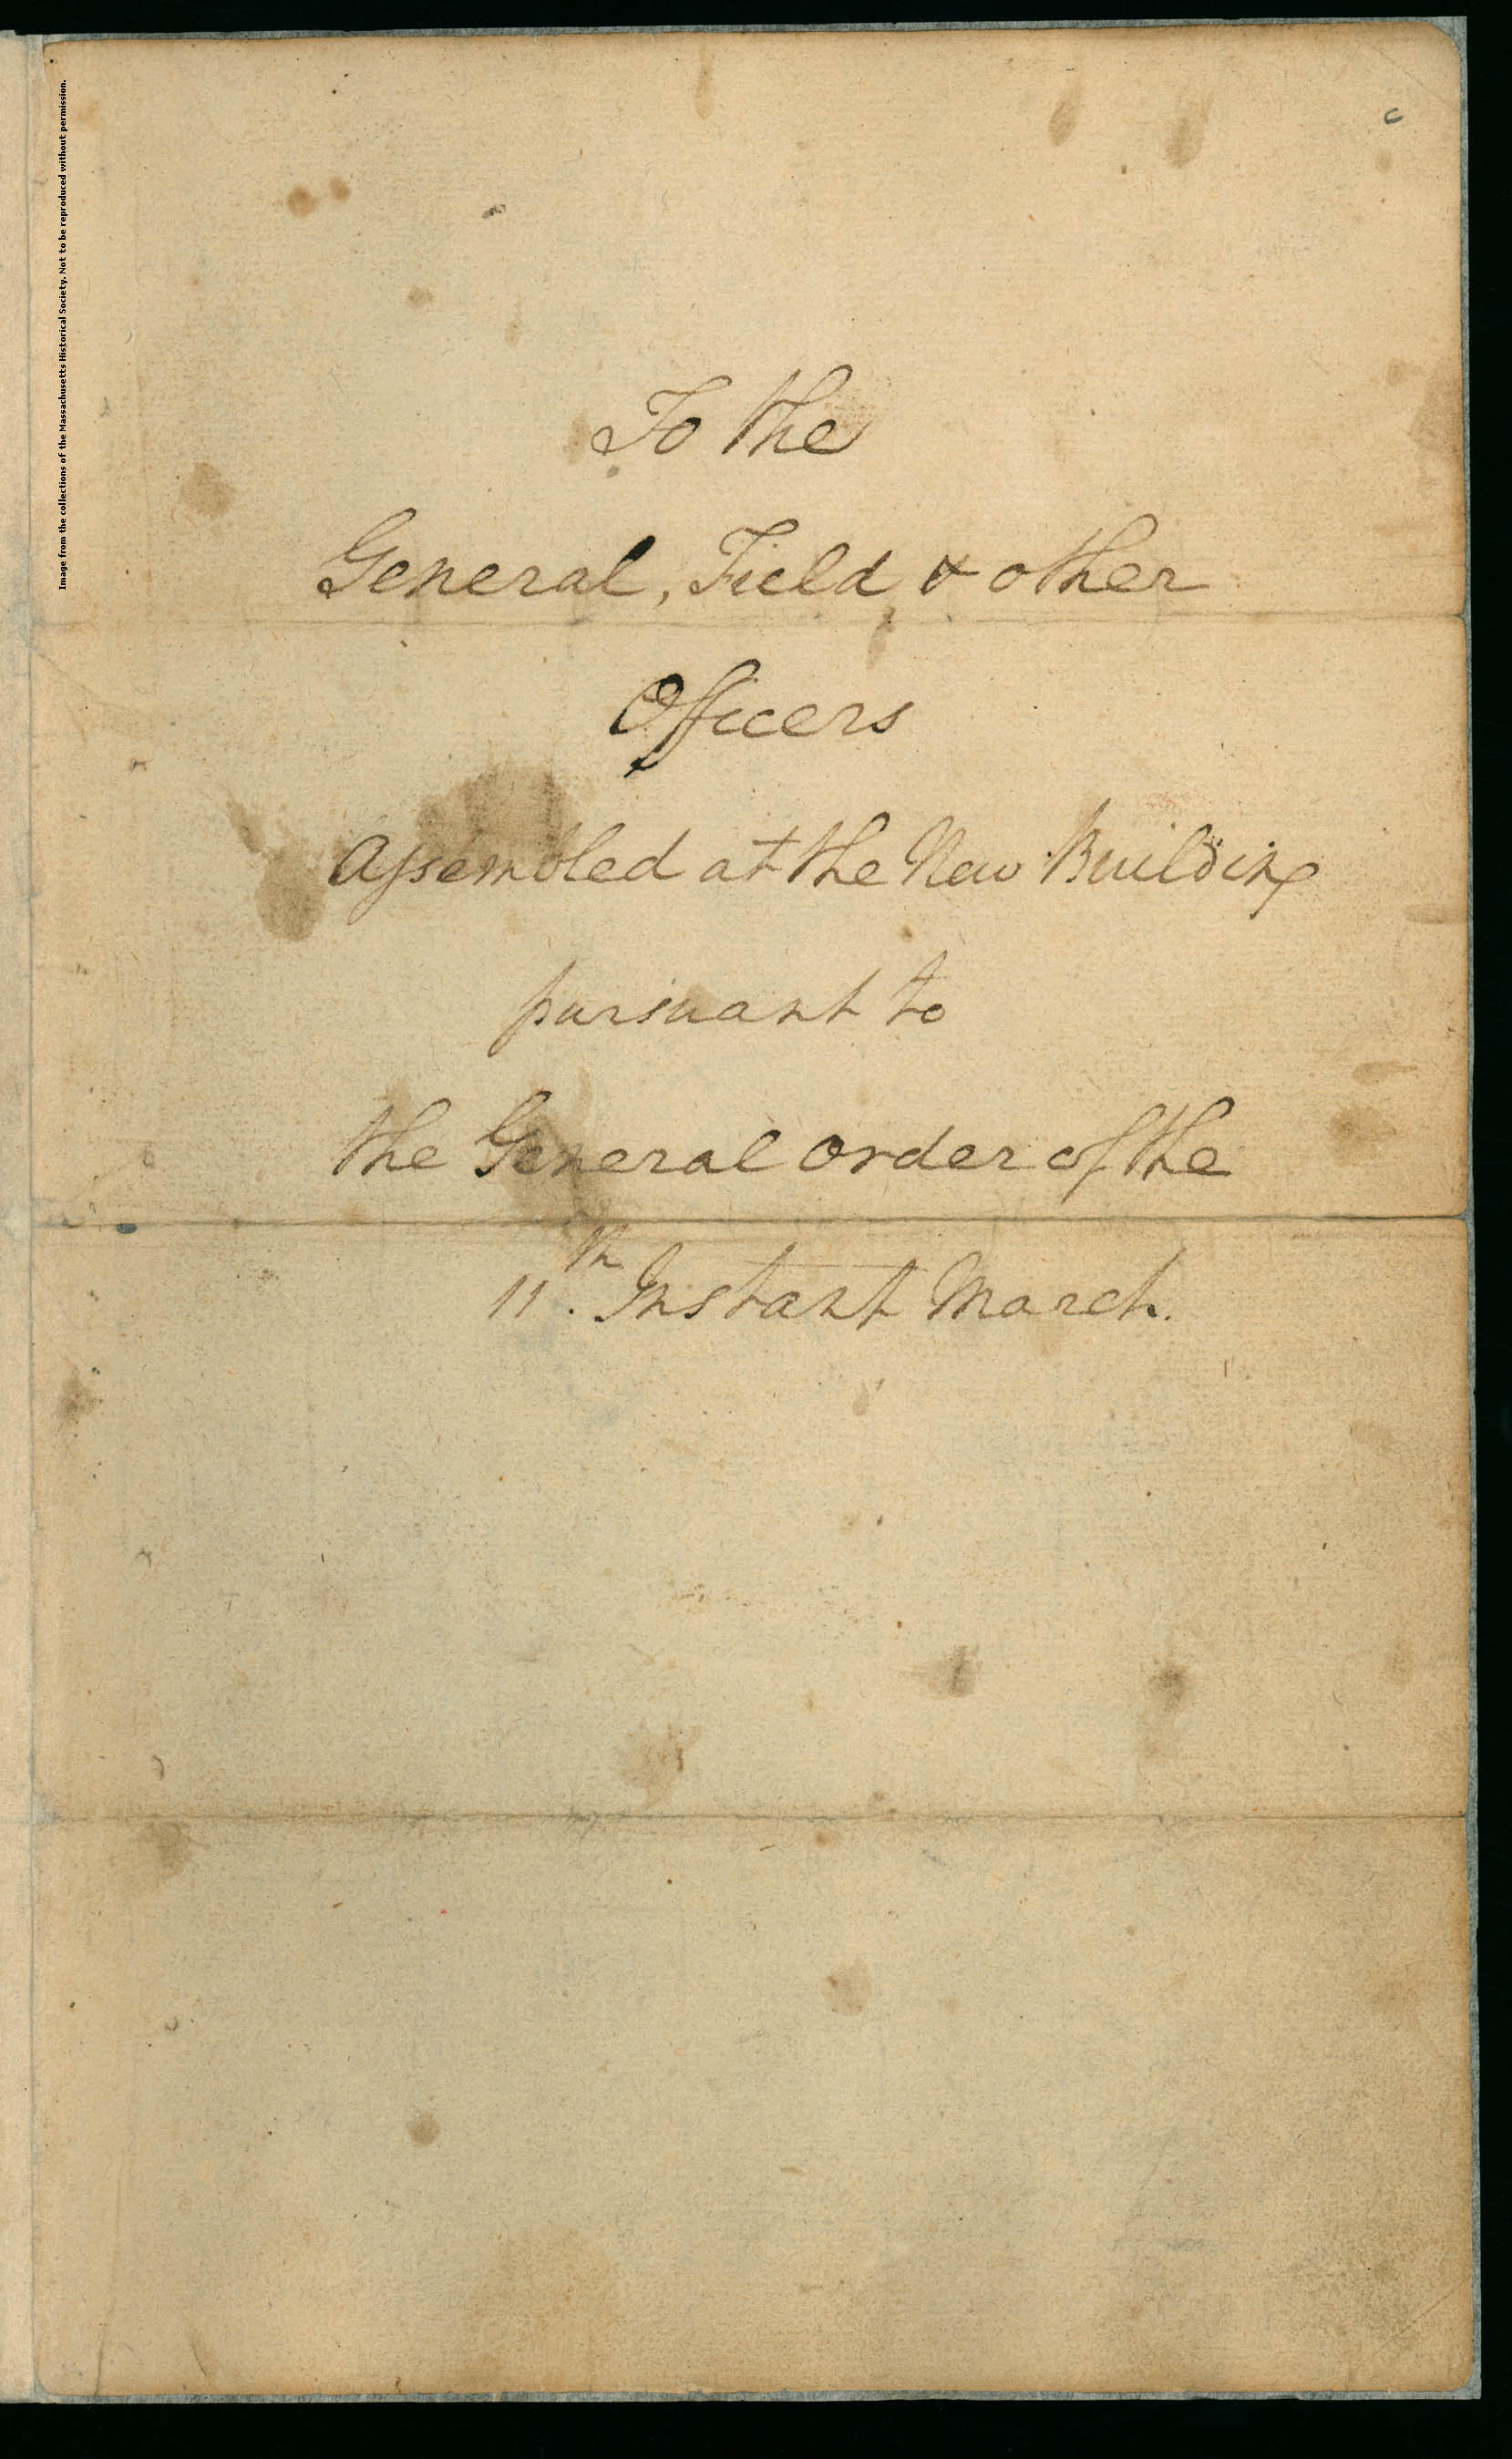 Image from the collections of the Massachusetts Historical Society. Not to be reproduced without permission.
To the
General, Field & other
Officers
Assembled at the New Building
pursuant to
the General order of the
11th. Instant March.